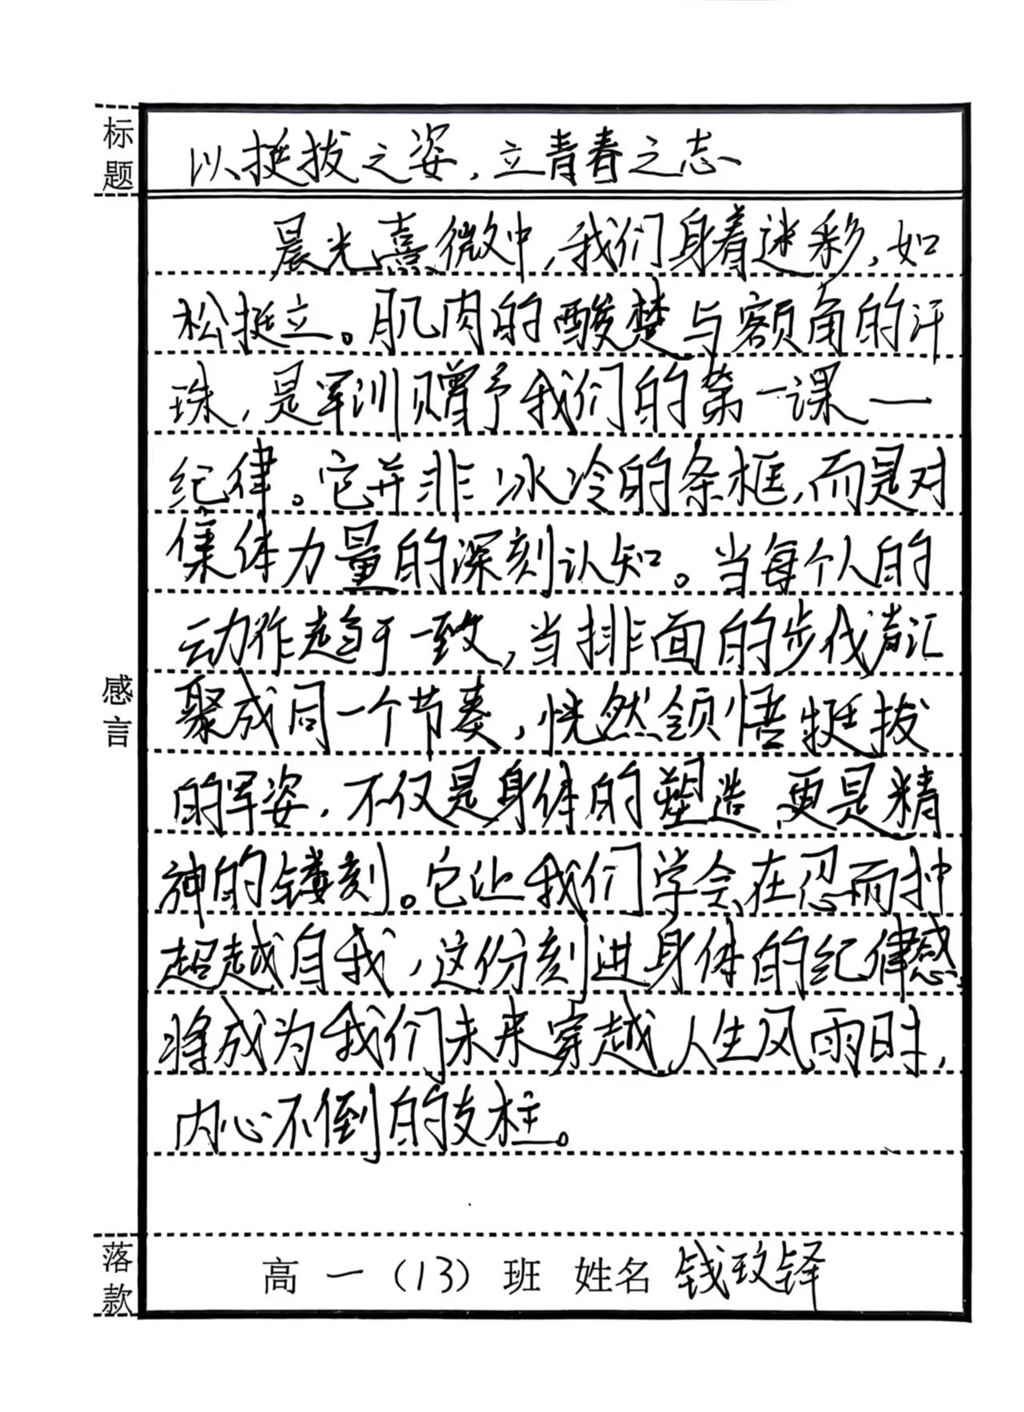 标题
以挺拔之姿，立青春之志
晨光熹微中，我们身着迷彩，如
松挺立。肌肉的酸楚与额角的汗
珠，是军训赠予我们的第一课—
纪律。它并非冰冷的条框，而是对
集体力量的深刻认知。当每个人的
动作趋于一致，当排面的步伐声汇
聚成同一个节奏，恍然领悟挺拔
的军姿，不仅是身体的塑造，更是精
神的镂刻。它让我们学会在忍耐中
超越自我，这份刻进身体的纪律感，
将成为我们未来穿越人生风雨时，
内心不倒的支柱。
感言
落款
高一（13）班 姓名 钱玟铎